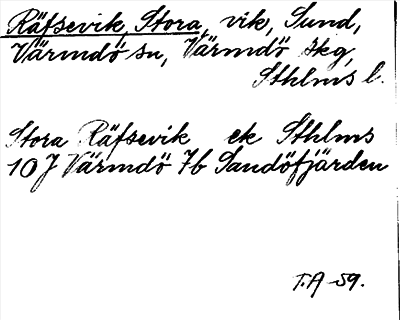 Räfsevik, Stora, vik, Sund,
Värmdö sn, Värmdö skg,
Sthlms l.
Stora Räfsevik ek Sthlms
10J Värmdö 7b Sandöfjärden
T.A -59.